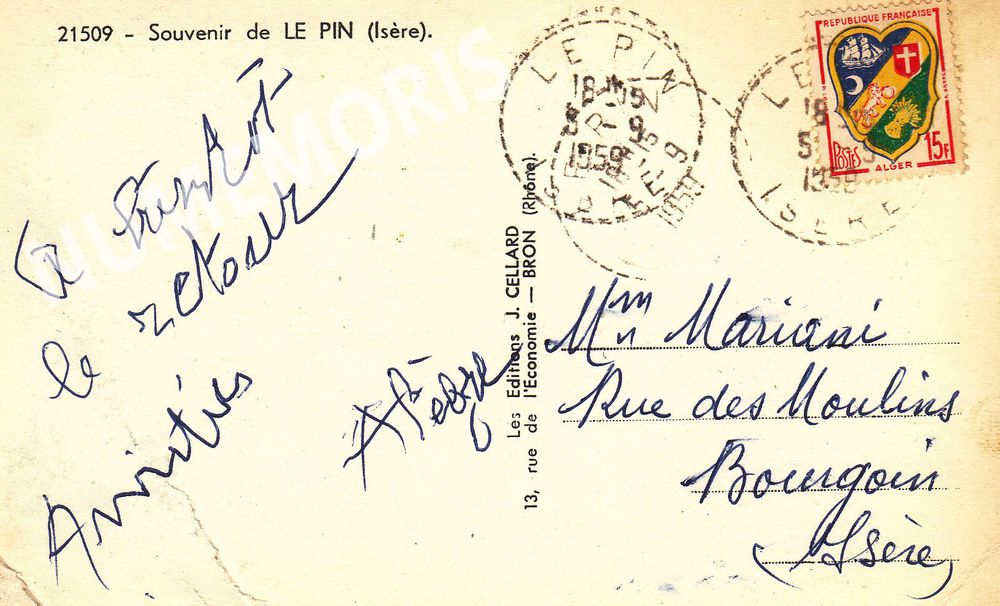 21509 - Souvenir de LE PIN (Isère).
NUMEMORIS
A
le retour
Amitiés
Les Editions J. CELLARD
13, rue de l'Economie — BRON (Rhône).
LE PIN
18
5 - 9
1959
ISERE
REPUBLIQUE FRANÇAISE
POSTES
ALGER
15F
Mme Mariani
Rue des Moulins
Bourgoin
Isère